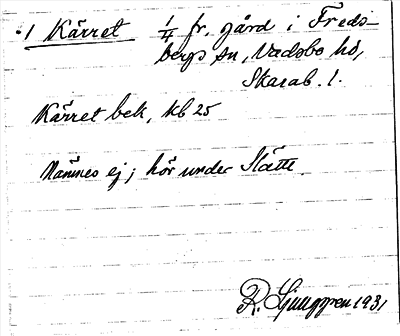 1 Kärret 1/4 fr. gård i Freds-
bergs sn, Vadsbo hd,
Skarab. l.
Kärret bek, kb 25
Nämnes ej; hör under Slätte
R. Ljunggren 1931